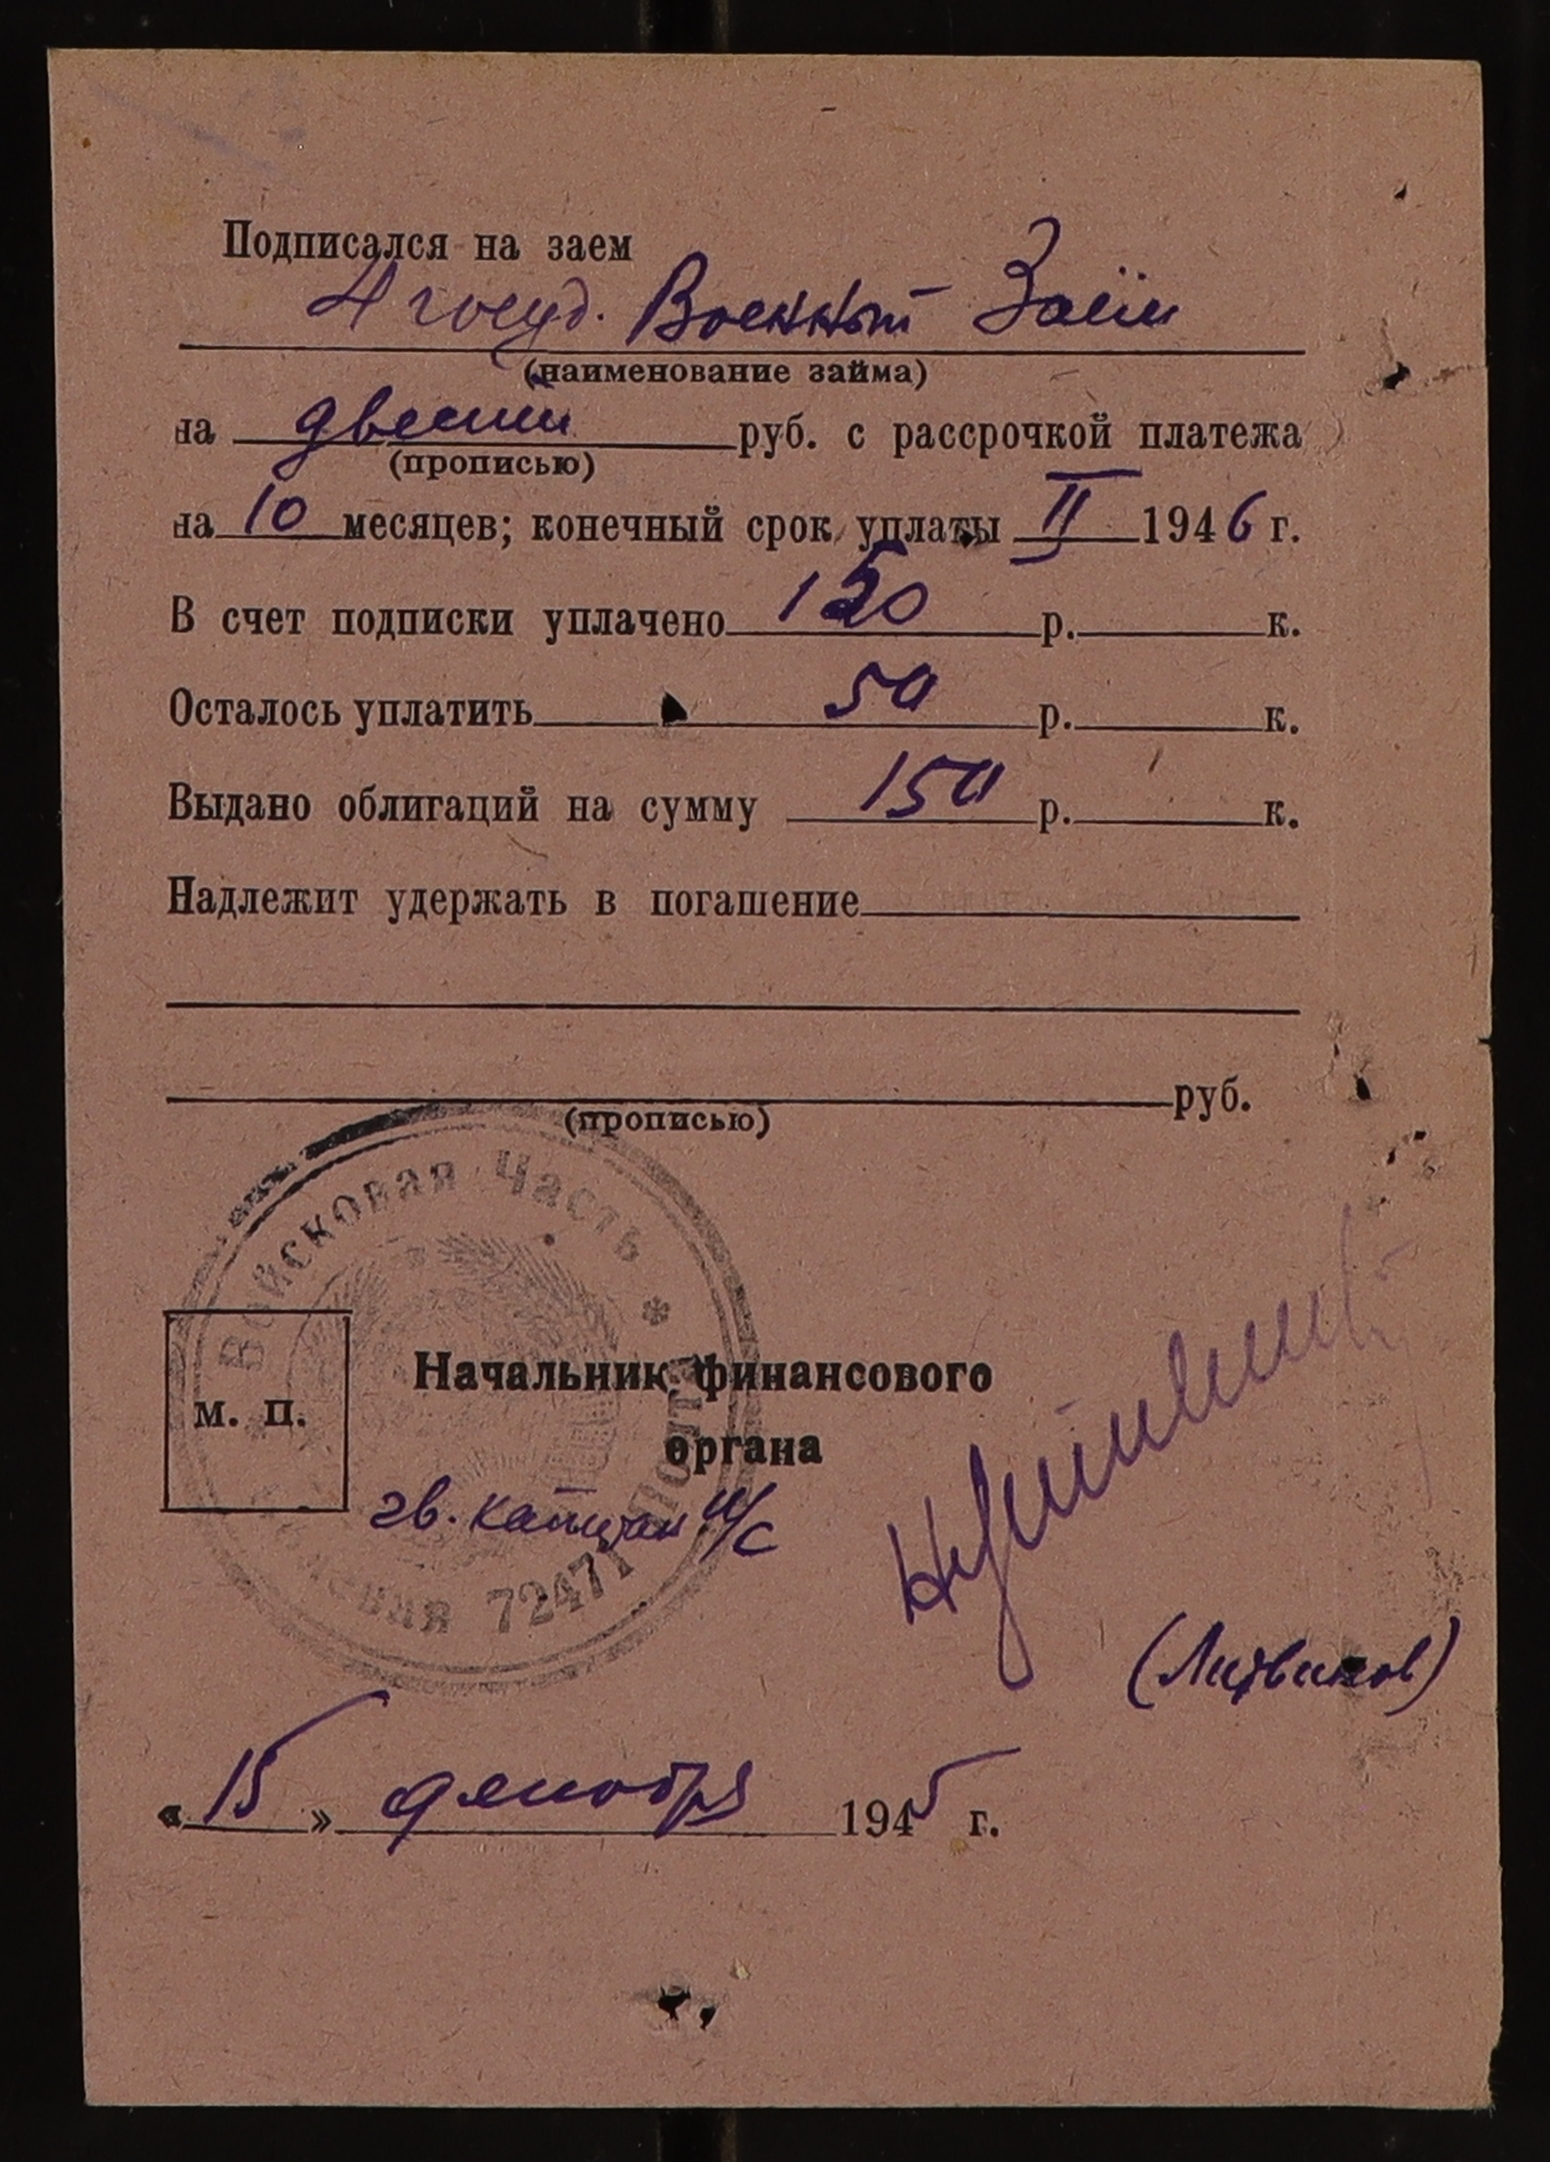 Подписался на заем
4 госуд. Военный Заём
(наименование займа)
на двести руб. с рассрочкой платежа
(прописью)
на 10 месяцев; конечный срок уплаты II 1946 г.
В счет подписки уплачено 150 р. к.
Осталось уплатить 50 р. к.
Выдано облигаций на сумму 150 р. к.
Надлежит удержать в погашение
руб.
(прописью)
Войсковая Часть * Полевая Почта 72471
м. п.
Начальник финансового
органа
гв. капитан и/с
(Литвинов)
« 15 » декабря 1945 г.